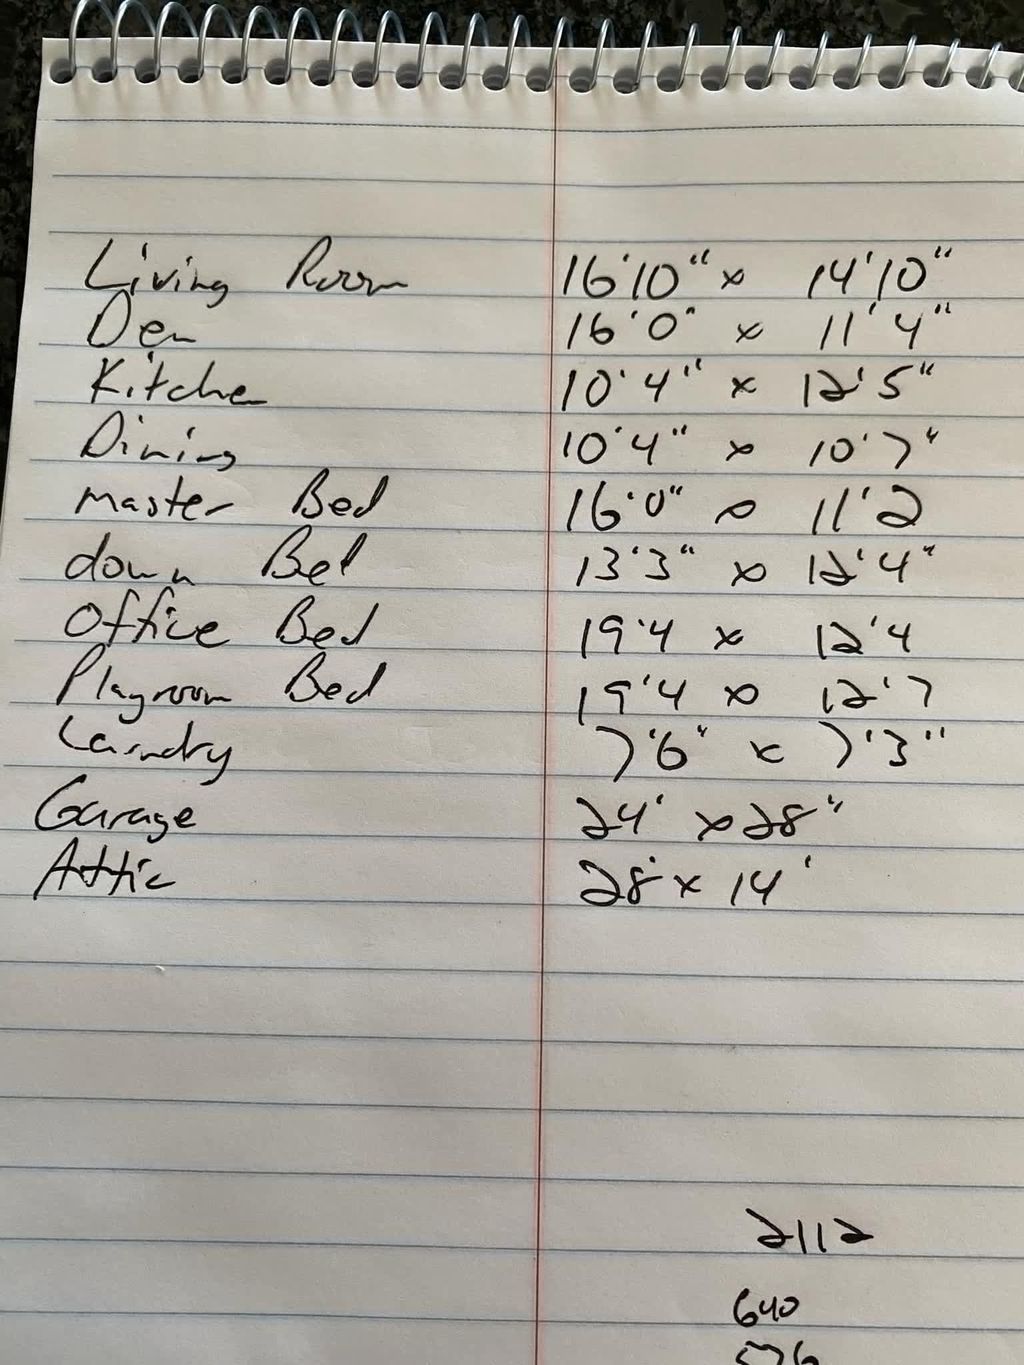 Living Room 16'10" x 14'10"
Den 16'0" x 11'4"
Kitchen 10'4" x 12'5"
Dining 10'4" x 10'7"
Master Bed 16'0" x 11'2
down Bed 13'3" x 12'4"
Office Bed 19'4 x 12'4
Playroom Bed 19'4 x 12'7
Laundry 7'6" x 7'3"
Garage 24' x 28"
Attic 28' x 14'
2112
640